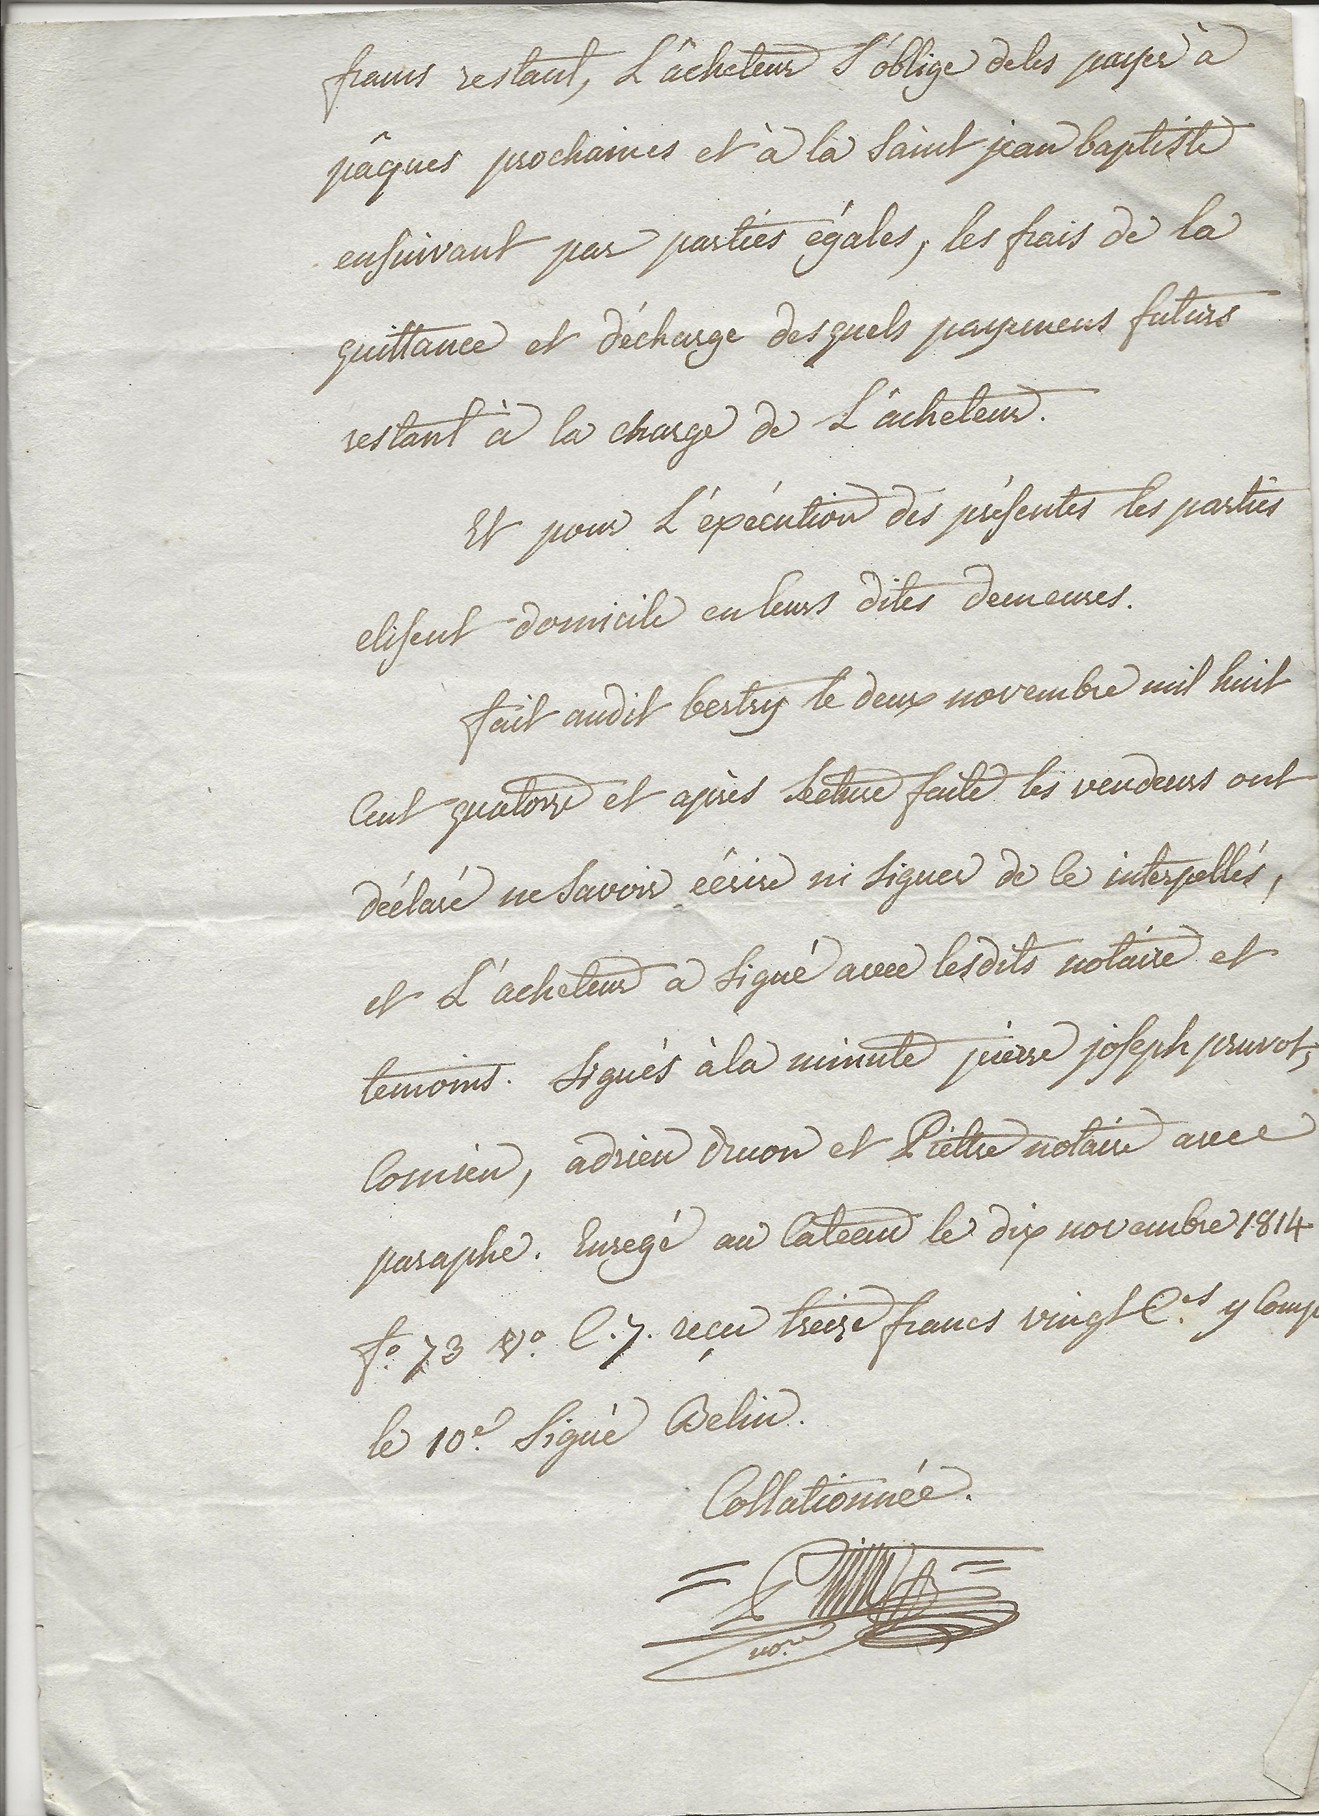 francs restant, L'âcheteur S'oblige deles payer à
pâques prochaines et à la Saint jean baptiste
ensuivant par parties égales, les frais de la
quittance et décharge desquels payemens futurs
restant à la charge de L'âcheteur.
Et pour L'éxécution des présentes les parties
elisent domicile en leurs dites demeures.
fait audit bertry le deux novembre mil huit
Cent quatorze et après lecture faite les vendeurs ont
déclaré ne Savoir écrire ni Signer de ce interpellés,
et L'acheteur a Signé avec lesdits notaire et
temoins. Signés à la minute pierre joseph pruvot,
adrien druon et Piettre notaire avec
paraphe. Enregé au Cateau le dix novembre 1814
fo. 73 vo. C. 7. reçu treize francs vingt Ces. y Comp
le 10e. Signé Belin.
Collationnée.
nore